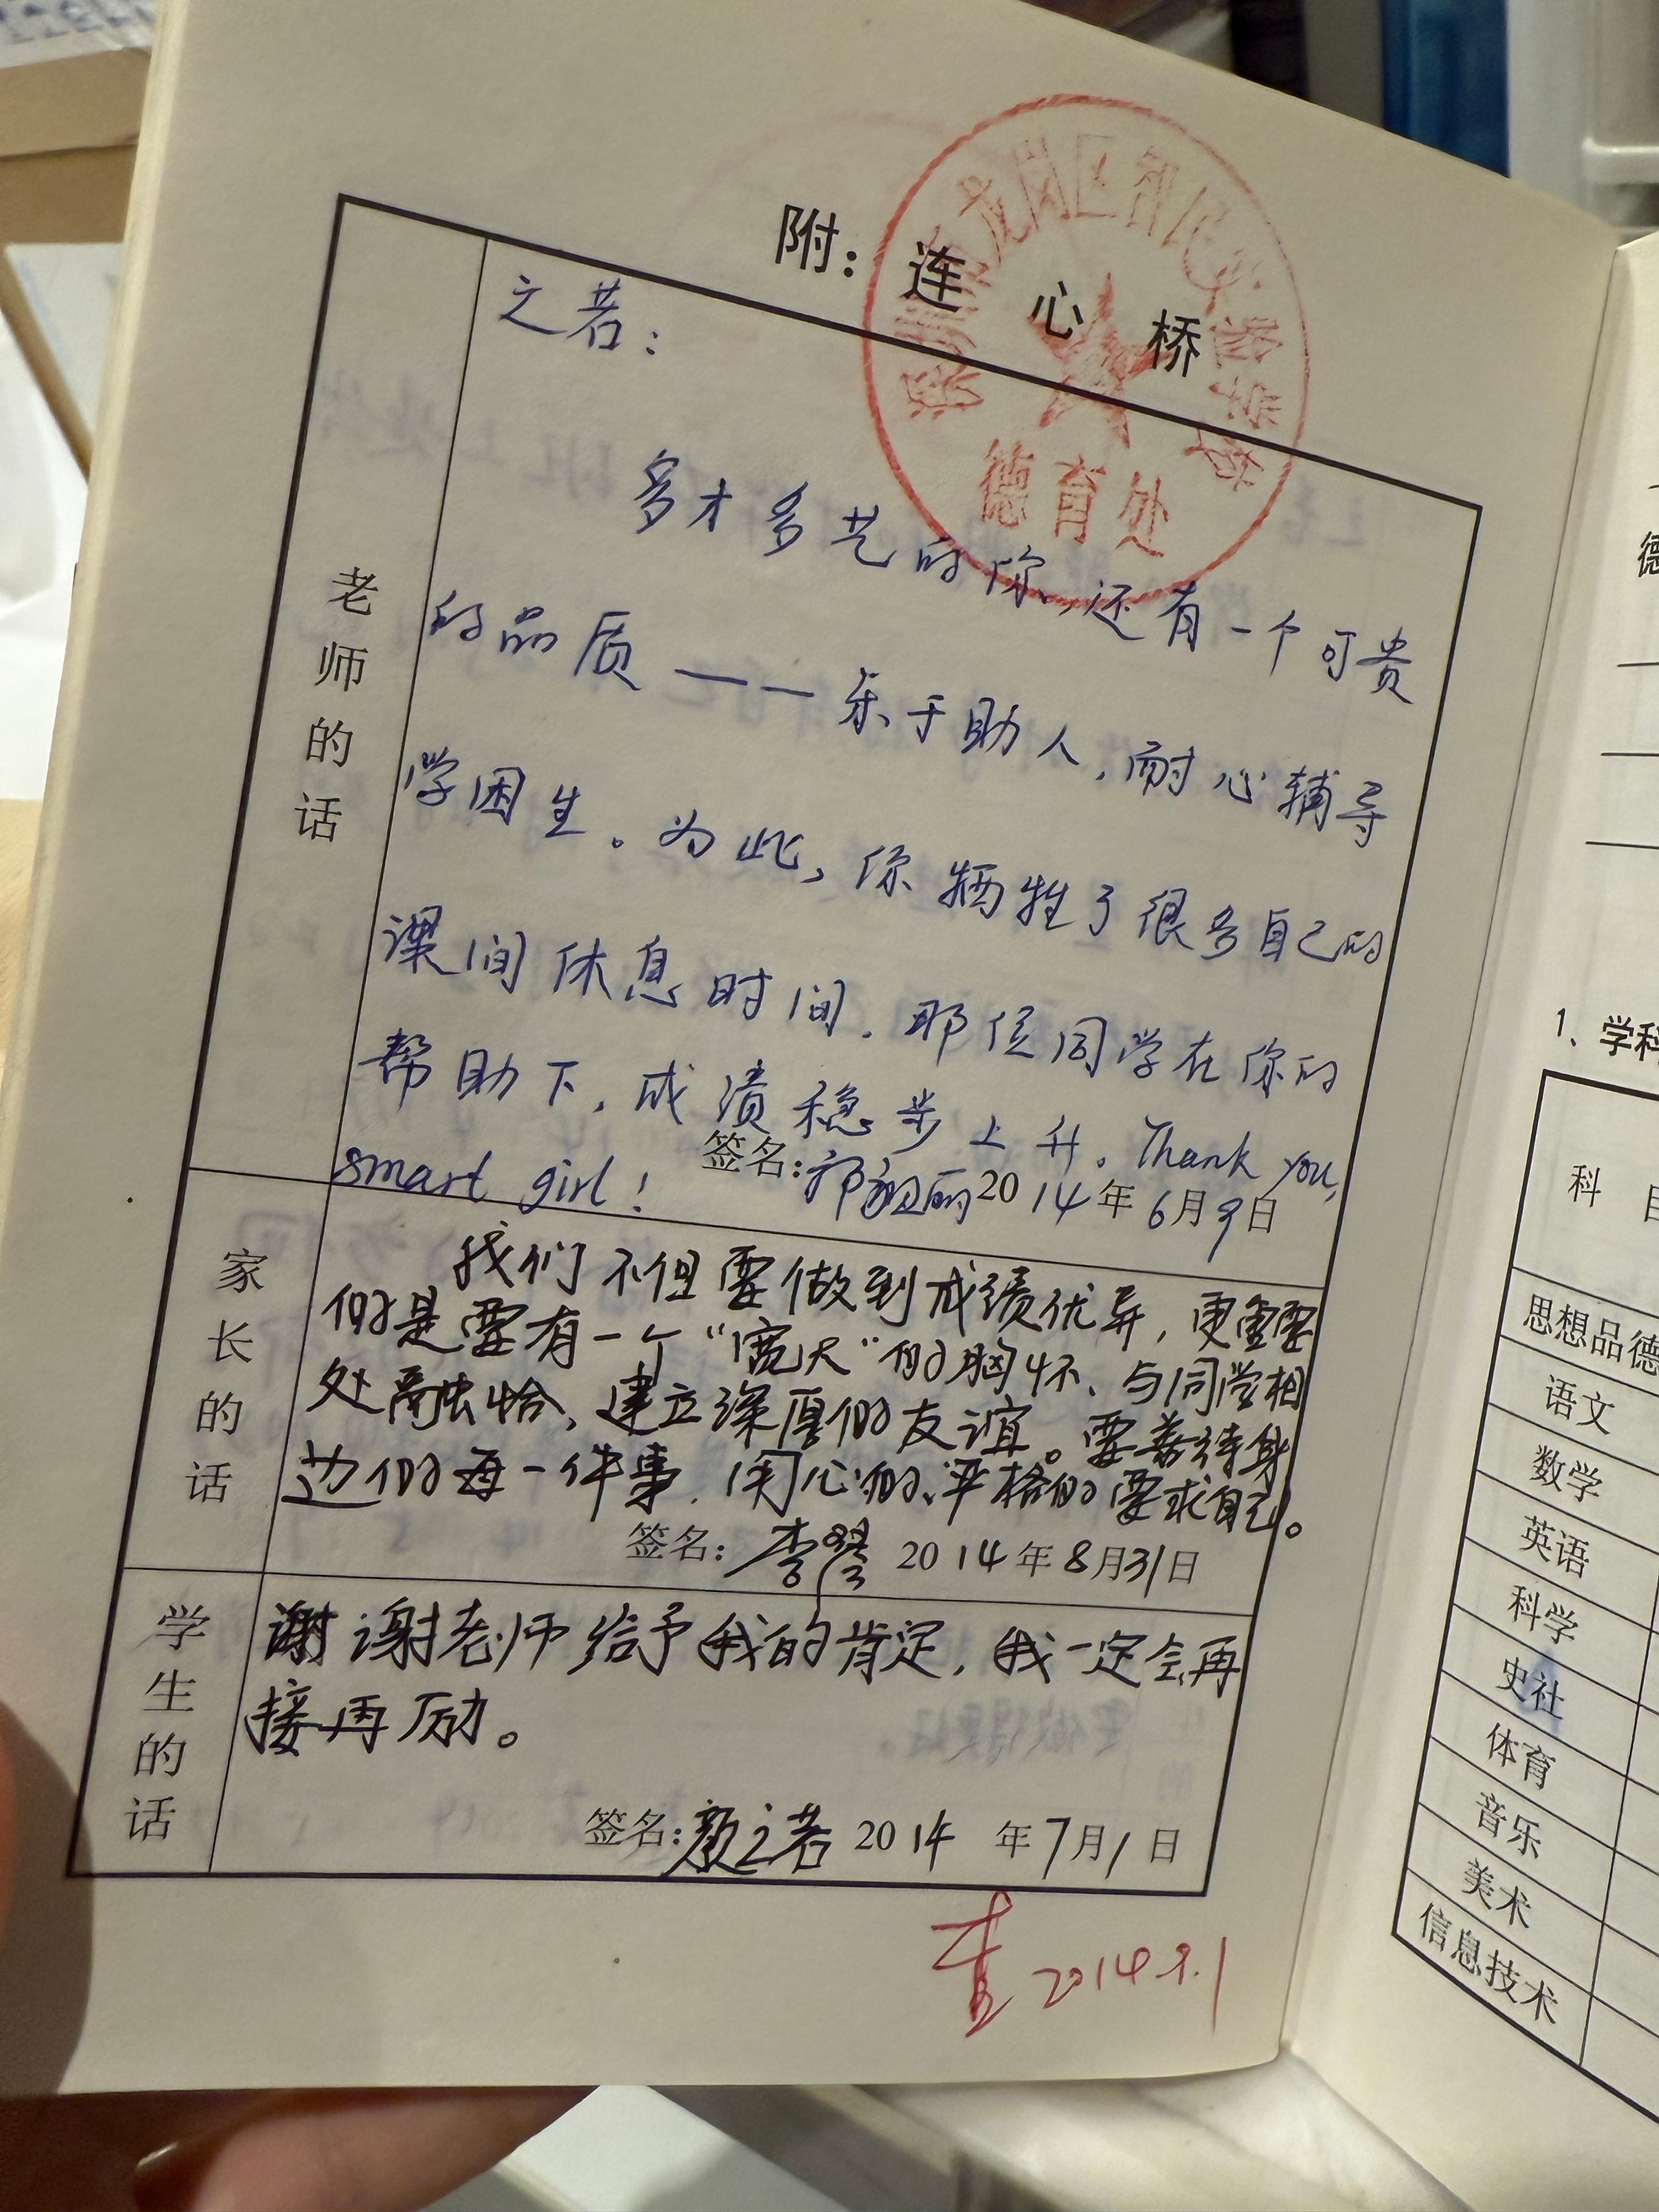 附：连心桥
德育处
老师的话
之若：
多才多艺的你，还有一个可贵
的品质——乐于助人，耐心辅导
学困生。为此，你牺牲了很多自己的
课间休息时间。那位同学在你的
帮助下，成绩稳步上升。Thank you,
smart girl！
签名：2014年6月9日
家长的话
我们不但要做到成绩优异，更重要
的是要有一个“宽大”的胸怀、与同学相
处融洽，建立深厚的友谊。要善待身
边的每一件事，用心的、严格的要求自己。
签名：李 2014年8月31日
学生的话
谢谢老师给予我的肯定，我一定会再
接再厉。
签名：颜之若 2014年7月1日
2014.9.1
1、学科
科目
思想品德
语文
数学
英语
科学
史社
体育
音乐
美术
信息技术